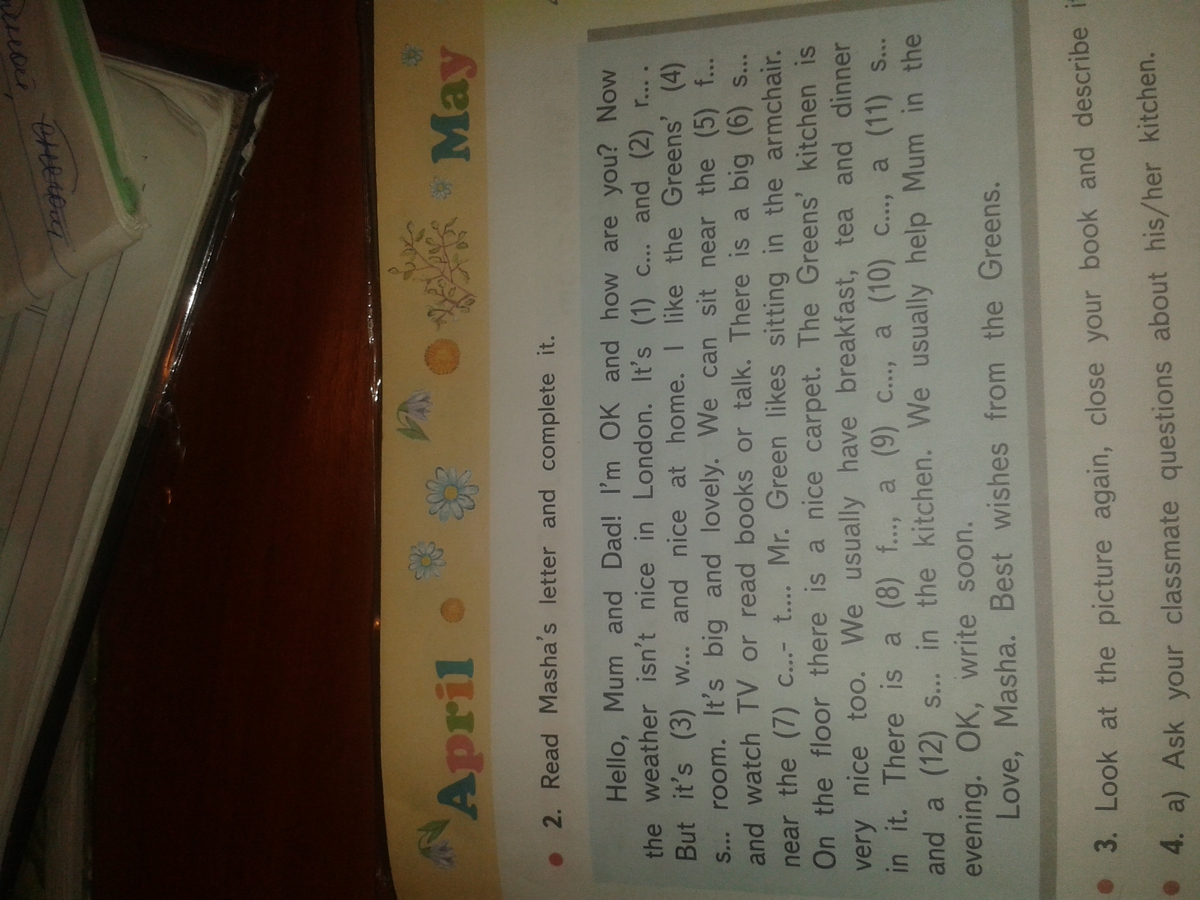 April May
2. Read Masha's letter and complete it.
Hello, Mum and Dad! I'm OK and how are you? Now
the weather isn't nice in London. It's (1) c... and (2) r... .
But it's (3) w... and nice at home. I like the Greens' (4)
s... room. It's big and lovely. We can sit near the (5) f...
and watch TV or read books or talk. There is a big (6) s...
near the (7) c...- t.... Mr. Green likes sitting in the armchair.
On the floor there is a nice carpet. The Greens' kitchen is
very nice too. We usually have breakfast, tea and dinner
in it. There is a (8) f..., a (9) c..., a (10) c..., a (11) s...
and a (12) s... in the kitchen. We usually help Mum in the
evening. OK, write soon.
Love, Masha. Best wishes from the Greens.
3. Look at the picture again, close your book and describe
4. a) Ask your classmate questions about his/her kitchen.